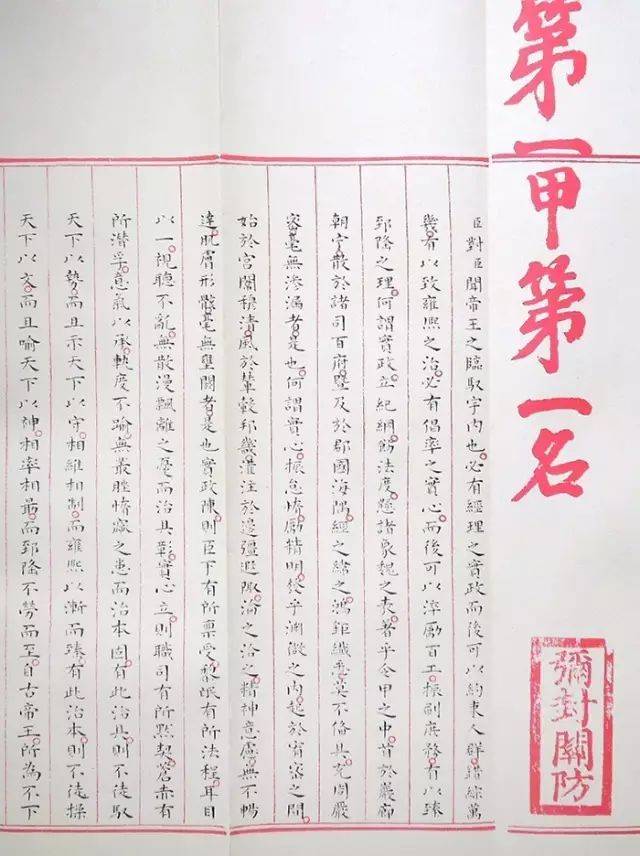 第一甲第一名
彌封關防
臣對臣聞帝王之臨馭宇內也必有經理之實政而後可以約束人群錯綜萬
幾有以致雍熙之治必有倡率之實心而後可以淬勵百工振刷庶務有以臻
郅隆之理何謂實政立紀綱飭法度懸諸象魏之表著乎令甲之中首於巖廊
朝宁散於諸司百府暨及於郡國海隅經之緯之鴻鉅纖悉莫不備具充周嚴
密毫無滲漏者是也何謂實心振怠惰勵精明發乎淵微之內起於宵寐之間
始於宮闈穆清風於輦轂邦畿灌注於邊疆遐陬淪之洽之精神意慮無不暢
達肌膚形骸毫無壅閼者是也實政陳則臣下有所稟受黎氓有所法程耳目
以一視聽不亂無散漫飄離之憂而治具彰實心立則職司有所默契蒼赤有
所潛孚意氣以承軌度不踰無叢脞惰窳之患而治本固有此治具則不徒馭
天下以勢而且示天下以守相維相制而雍熙以漸而臻有此治本則不徒操
天下以文而且喻天下以神相率相勗而郅隆不勞而至自古帝王所為不下